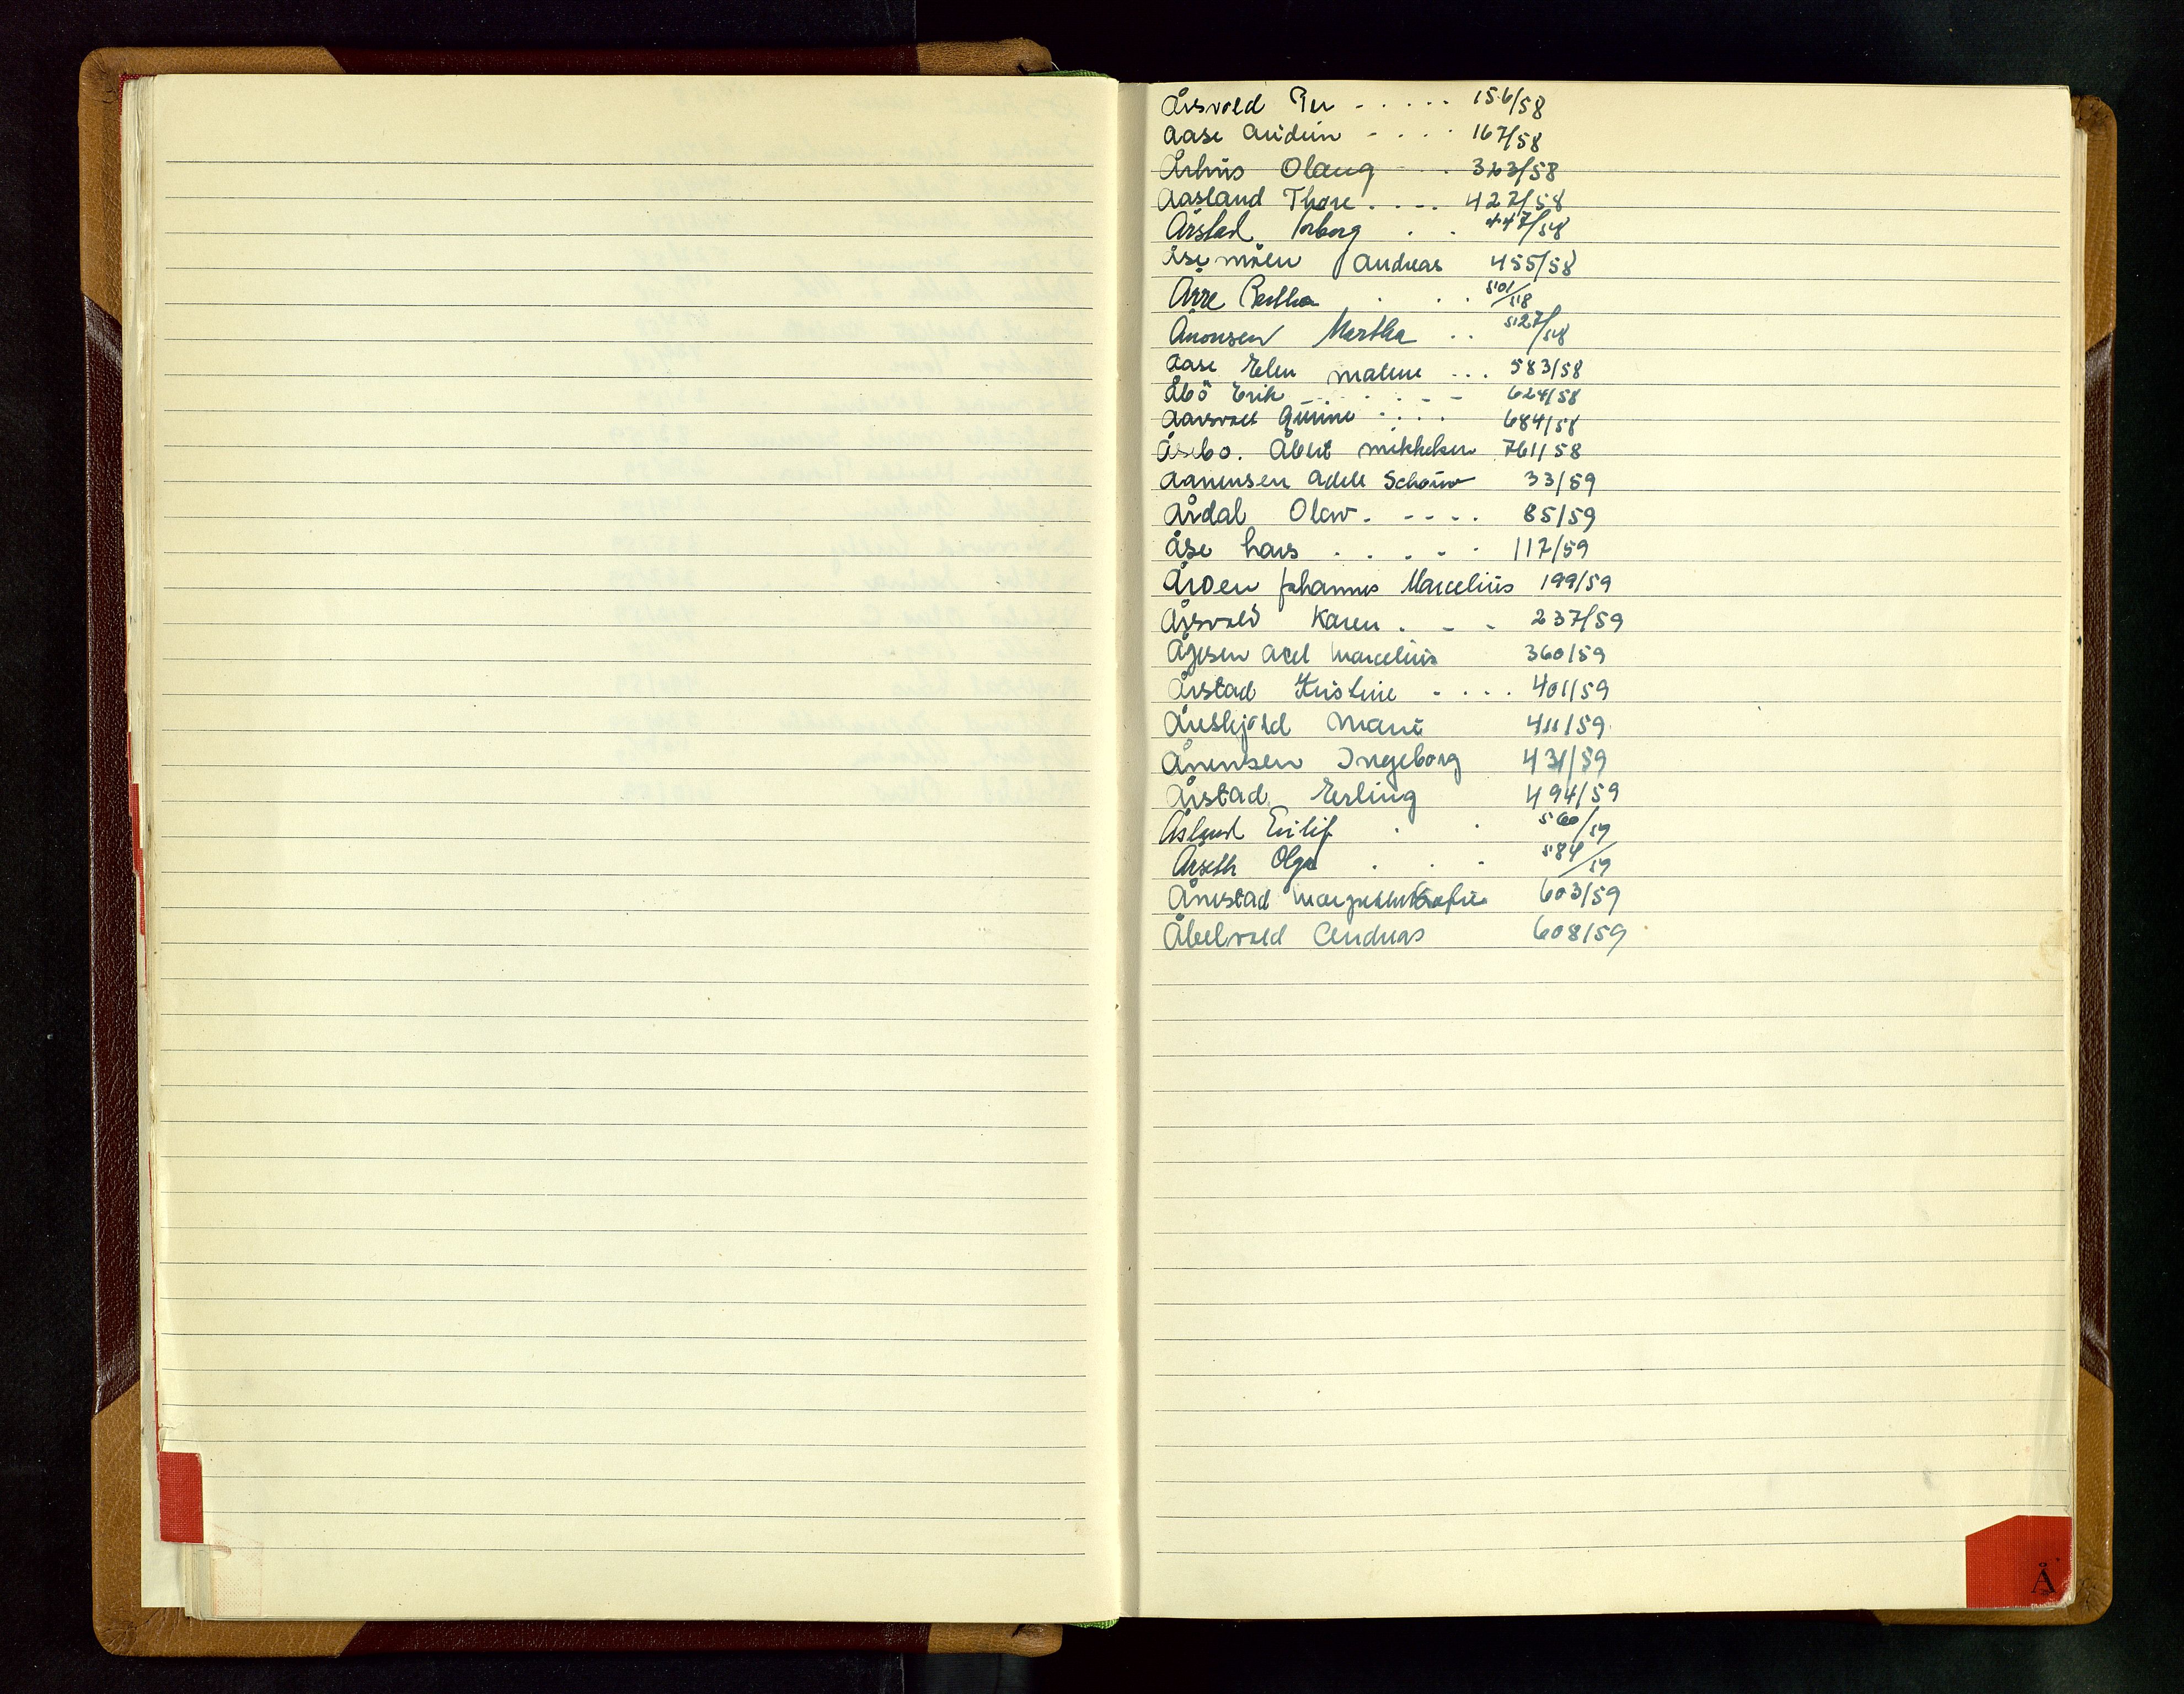 Årsvold Per - . . . . 156/58
Aase Audun - . . . 167/58
Århus Olaug . 323/58
Aasland Thore . . . . 427/58
Årstad Torborg . . 447/58
Åsemoen Andreas 455/58
Årre Bertha . . . 501/58
Ånonsen Martha . . 527/58
Aase Elen Malene . . . 583/58
Åbö Erik . . . . . - 624/58
Aarsvolt Gurine . . . . 684/58
Åsebo. Åbert Mikkelsen 761/58
Aanensen Adele Schouw 33/59
Årdal Olav. - - - . 85/59
Åse Lars . . . - . 117/59
Åroen Johannes Marcelius 199/59
Årsvold Karen . - - 237/59
Ågesen Axel Marcelius 360/59
Årstad Kristine - . . . 401/59
Åreskjold Marie 411/59
Ånensen Ingeborg 431/59
Årstad Erling 494/59
Åsland Eilif . . 560/59
Årseth Olga . . . 584/59
Ånestad Sofie 603/59
Åbelvold Andreas 608/59
Å